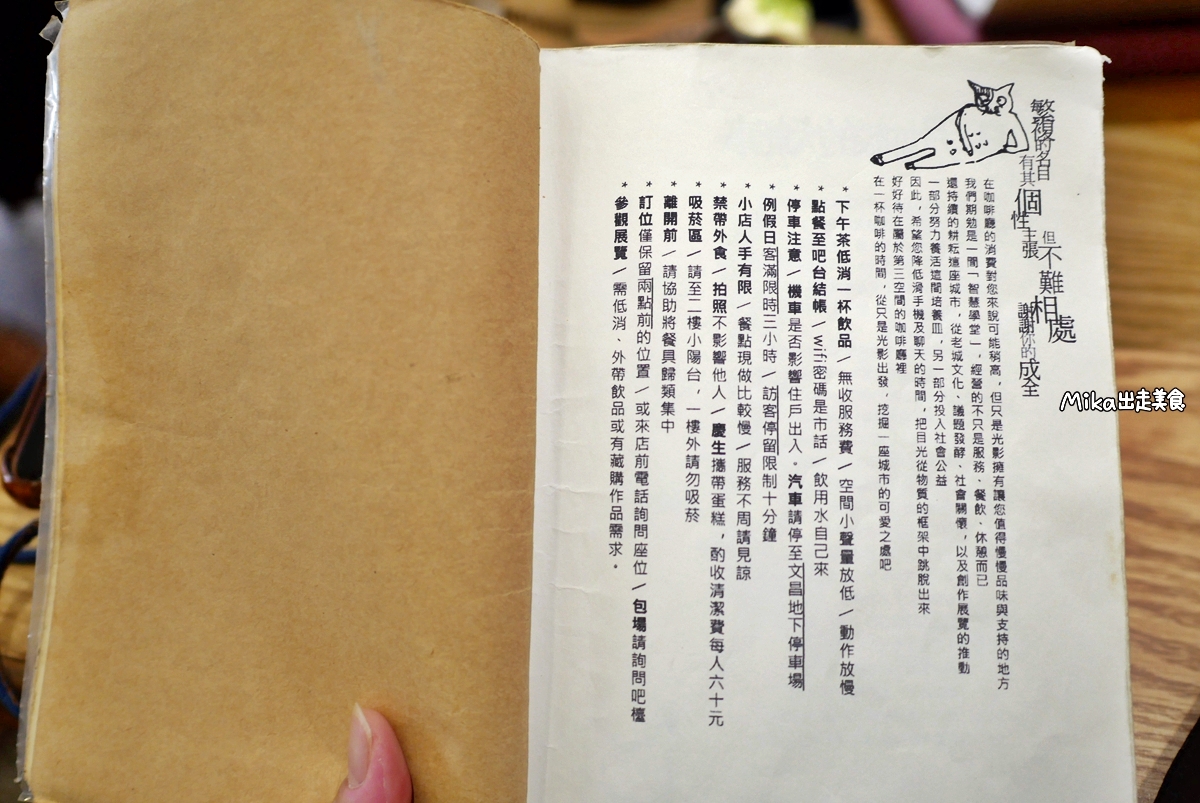 繁複的名目
有其個性主張
但不難相處
謝謝你的成全
在咖啡廳的消費對您來說可能稍高，但只是光影擁有讓您值得慢慢品味與支持的地方
我們期勉是一間「智慧學堂」，經營的不只是服務、餐飲、休憩而已
還持續的耕耘這座城市，從老城文化、議題發酵、社會關懷，以及創作展覽的推動
一部分努力養活這間培養皿，另一部分投入社會公益
因此，希望您降低滑手機及聊天的時間，把目光從物質的框架中跳脫出來
好好待在屬於第三空間的咖啡廳裡
在一杯咖啡的時間，從只是光影出發，挖掘一座城市的可愛之處吧
* 下午茶低消一杯飲品 / 無收服務費 / 空間小聲量放低 / 動作放慢
* 點餐至吧台結帳 / wifi密碼是市話 / 飲用水自己來
* 停車注意 / 機車是否影響住戶出入。汽車請停至文昌地下停車場
* 例假日客滿限時三小時 / 訪客停留限制十分鐘
* 小店人手有限 / 餐點現做比較慢 / 服務不周請見諒
* 禁帶外食 / 拍照不影響他人 / 慶生攜帶蛋糕，酌收清潔費每人六十元
* 吸菸區 / 請至二樓小陽台，一樓外請勿吸菸
* 離開前 / 請協助將餐具歸類集中
* 訂位僅保留兩點前的位置 / 或來店前電話詢問座位 / 包場請詢問吧檯
* 參觀展覽 / 需低消、外帶飲品或有藏購作品需求。
Mika出走美食